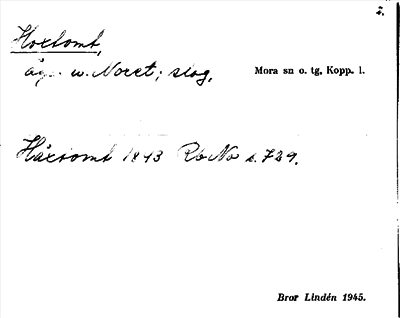 2.
Hoxtomt,
äg. w. Noret; slog. Mora sn o. tg, Kopp. l.
Håxtomt 1843 Rb No s. 739.
Bror Lindén 1945.